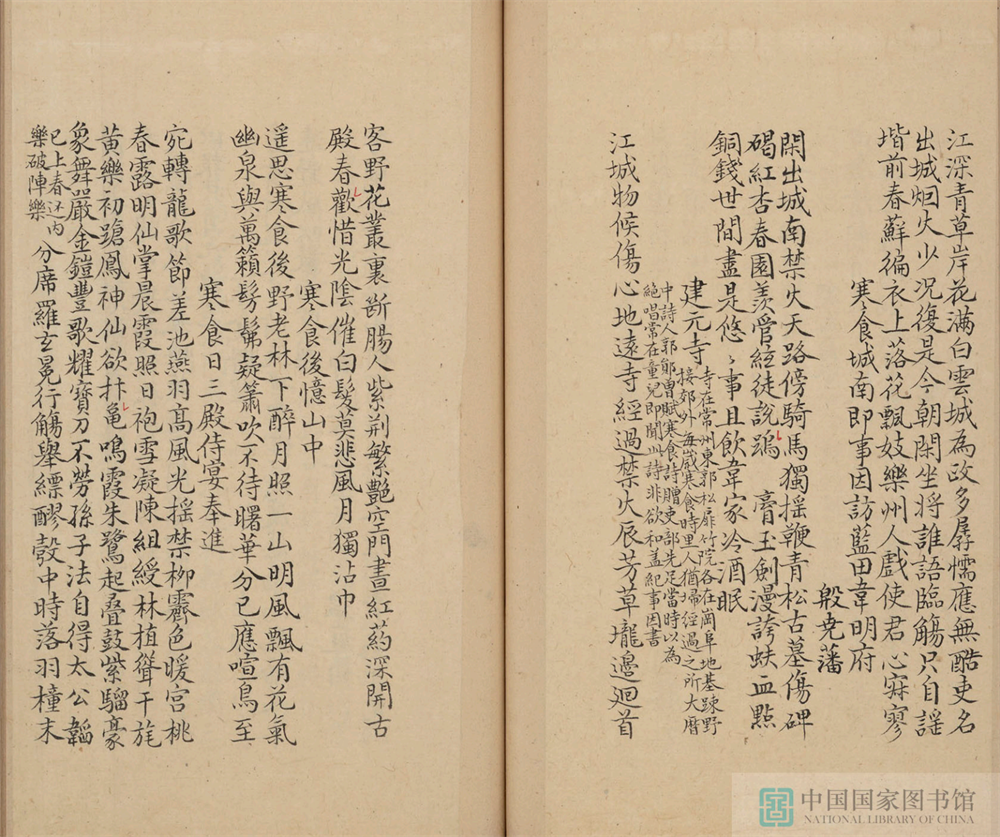 江深青草岸花滿白雲城為政多孱懦應無酷吏名
出城烟火少況復是今朝閑坐將誰語臨觴只自謡
堦前春蘚徧衣上落花飄妓樂州人戲使君心寂寥
寒食城南即事因訪藍田韋明府
殷尭藩
閑出城南禁火天路傍騎馬獨揺鞭青松古墓傷碑
碣紅杏春園羨管絃徒説鵶 膏玉劍漫誇蚨血㸃
銅錢世間盡是悠〻事且飲韋家冷酒眠
建元寺 寺在常州東郭松扉竹院各在崗阜地基踈野
接郊外每歲寒食時里人猶埽經過之所大曆
中詩人郭鄖曽賦寒食詩贈吏部先足當時以為
絶唱常在童兒即聞此詩非欲和盖紀事因書
江城物候傷心地遠寺經過禁火辰芳草壠邉迴首
客野花叢裏斷腸人紫荆繁艷空門晝紅葯深開古
殿春歡惜光陰催白髮莫悲風月獨沾巾
寒食後憶山中
遥思寒食後野老林下醉月照一山明風飄有花氣
幽泉與萬籟髣髴疑簫吹不待曙華分已應喧鳥至
寒食日三殿侍宴奉進
宛轉龍歌節差池燕羽髙風光揺禁柳霽色暖宫桃
春露明仙掌晨霞照日袍雪凝陳組綬林植聳干旄
黄樂初蹌鳳神仙欲抃黿鳴霞朱鷺起叠鼓紫騮豪
象舞嚴金鎧豐歌耀寳刀不勞孫子法自得太公韜
已上春还内
樂破陣樂 分席羅玄冕行觴舉縹醪彀中時落羽橦末